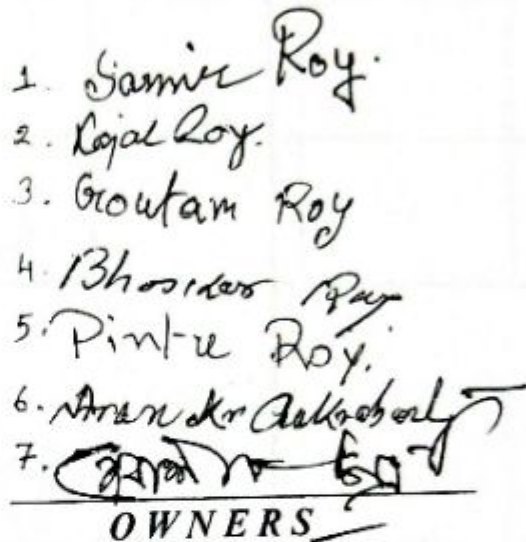 1. Samir Roy.
2. Kajal Roy.
3. Goutam Roy
4. Bhaskar Roy
5. Pintu Roy.
6. Kr Chakraborty
7.
OWNERS